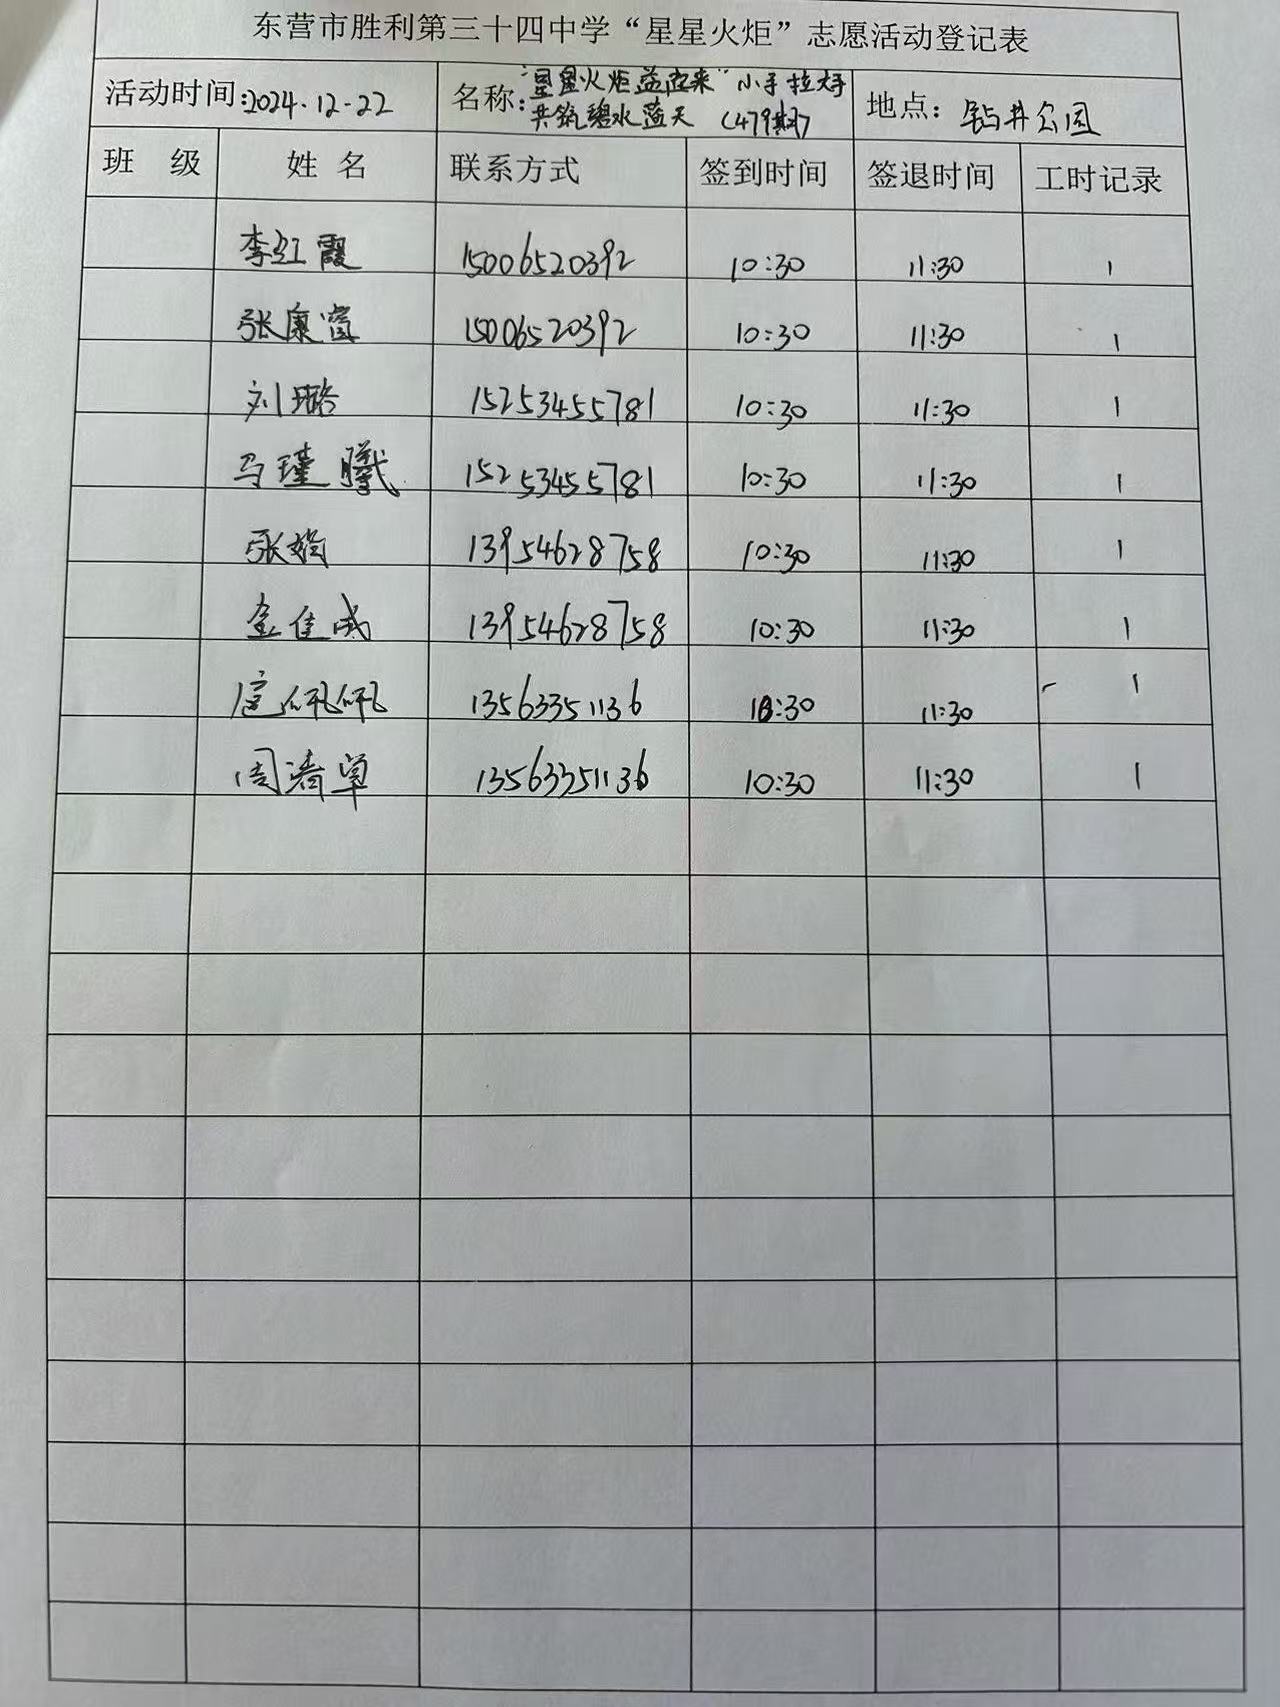 东营市胜利第三十四中学“星星火炬”志愿活动登记表
活动时间:2024.12-22 名称:“星星火炬益起来”小手拉大手 共筑碧水蓝天 (479期) 地点: 钻井公园
班 级 姓 名 联系方式 签到时间 签退时间 工时记录
李红霞 15006520392 10:30 11:30 1
张康 15006520392 10:30 11:30 1
刘璐 15253455781 10:30 11:30 1
马瑾曦 15253455781 10:30 11:30 1
张娟 13954628758 10:30 11:30 1
金佳成 13954628758 10:30 11:30 1
13563351136 10:30 11:30 1
周清卓 13563351136 10:30 11:30 1